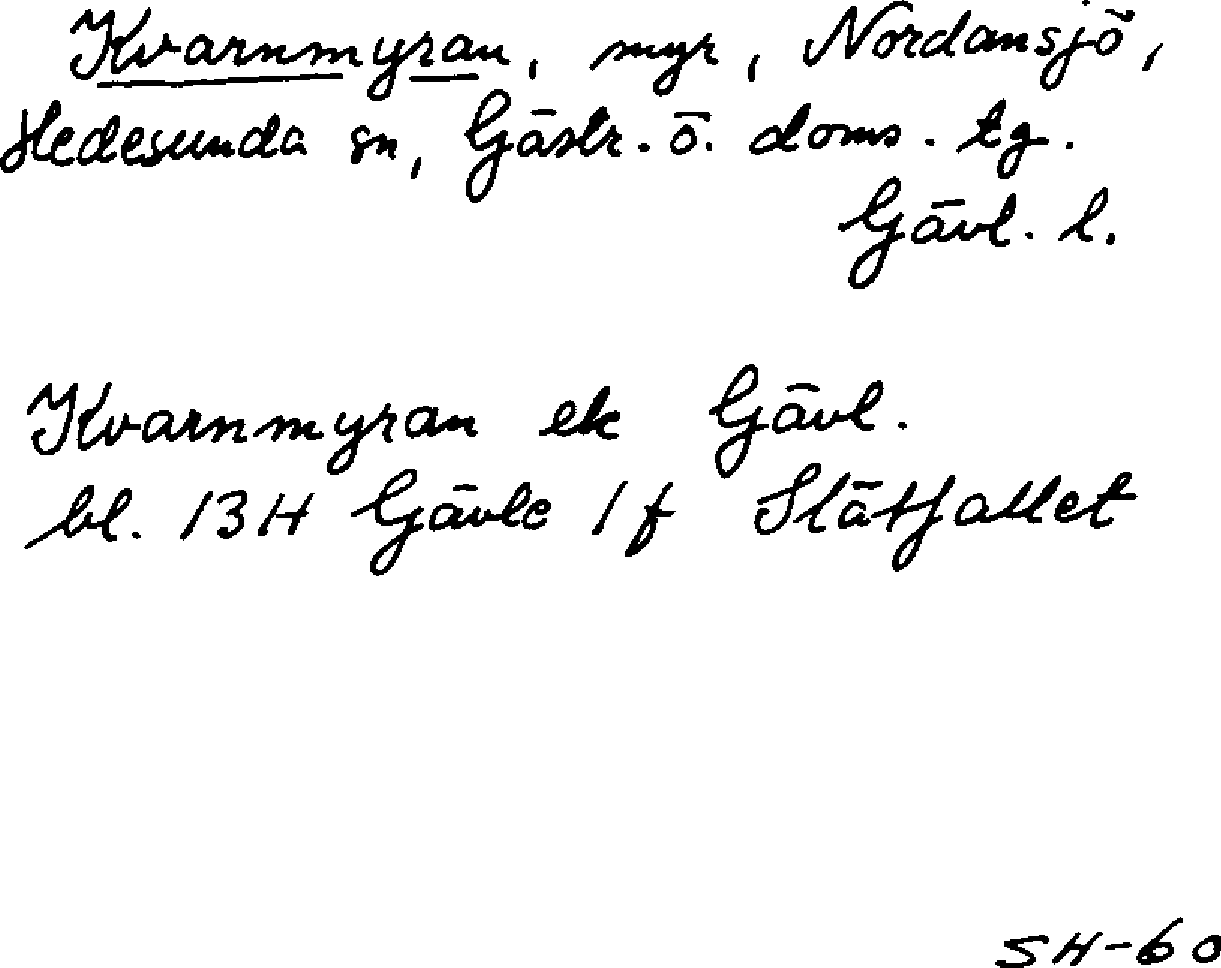 Kvarnmyran, myr, Nordansjö,
Hedesunda sn, Gästr. ö. doms. tg.
Gävl. l.
Kvarnmyran ek Gävl.
bl. 13H Gävle 1f Slätfallet
SH-60